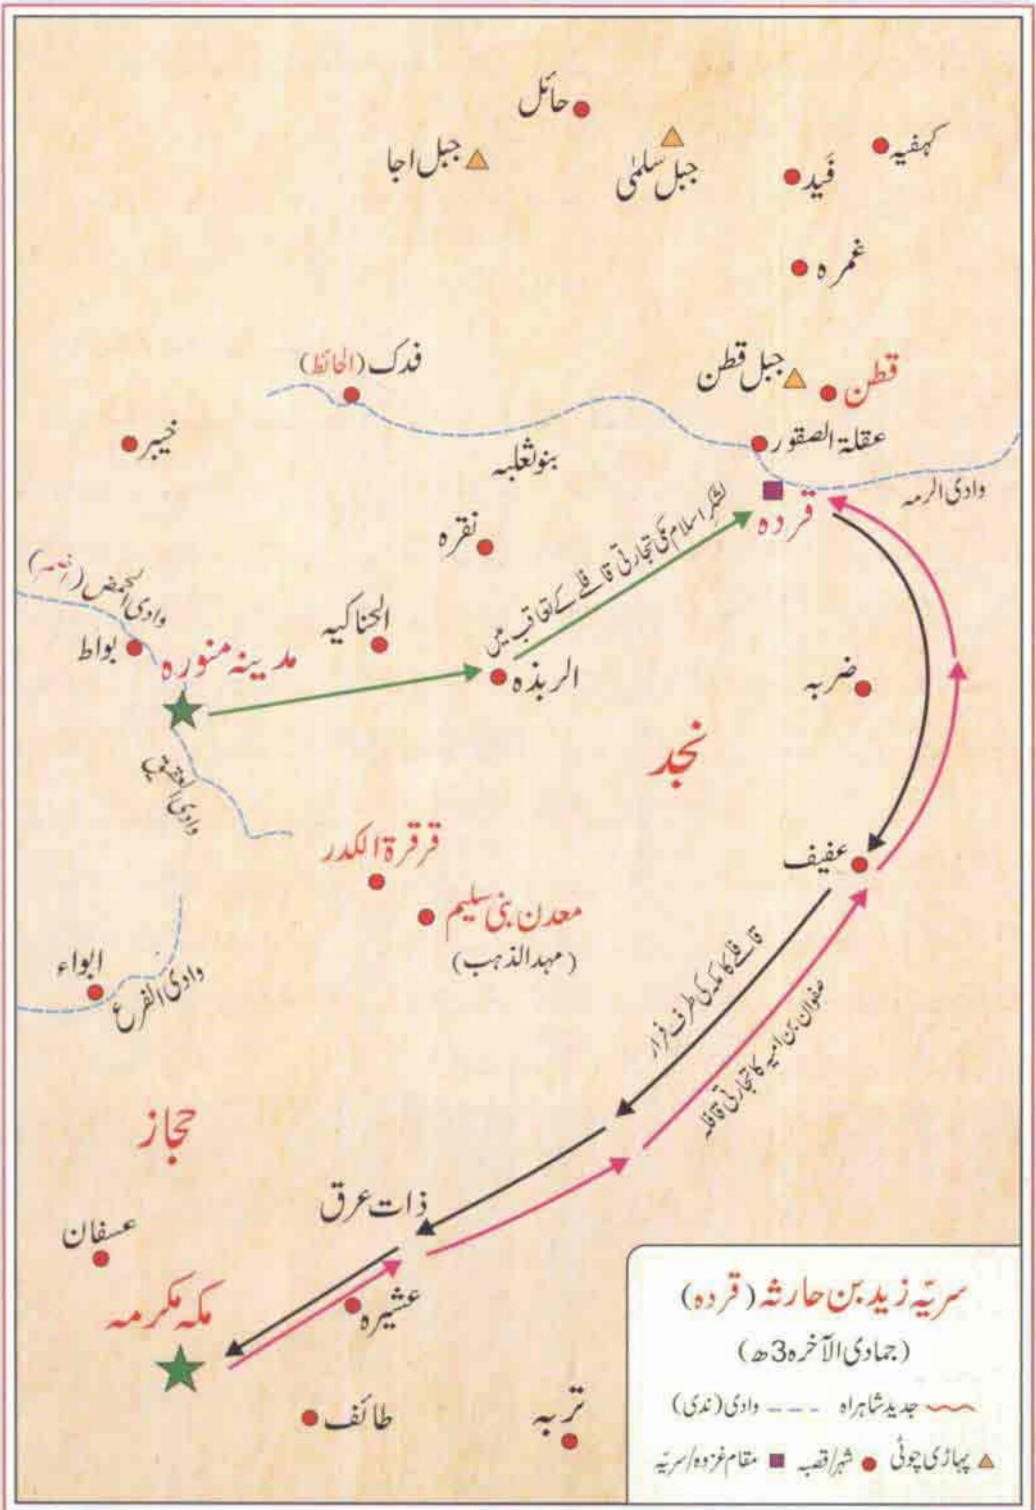 حائل
کہفیہ
جبل اجا
جبل سلمٰی
فَید
غمرہ
فدک (الحائط)
جبل قطن
قطن
خیبر
بنو ثعلبہ
عقلۃ الصقور
وادی الرمہ
قردہ
نقرہ
لشکر اسلام مکی تجارتی قافلے کے تعاقب میں
وادی الحمض (اضم)
بواط
مدینہ منورہ
الحناکیہ
الربذہ
ضربہ
نجد
وادی العقیق
قرقرۃ الکدر
عفیف
معدن بنی سلیم
(مہد الذہب)
ابواء
وادی الفرع
قافلے کا مکہ کی طرف فرار
صفوان بن امیہ کا تجارتی قافلہ
حجاز
ذات عرق
عسفان
مکہ مکرمہ
عشیرہ
طائف
تربہ
سریّہ زید بن حارثہ (قردہ)
(جمادی الآخرہ 3ھ)
جدید شاہراہ وادی (ندی)
پہاڑی چوٹی شہر/قصبہ مقام غزوہ/سریّہ